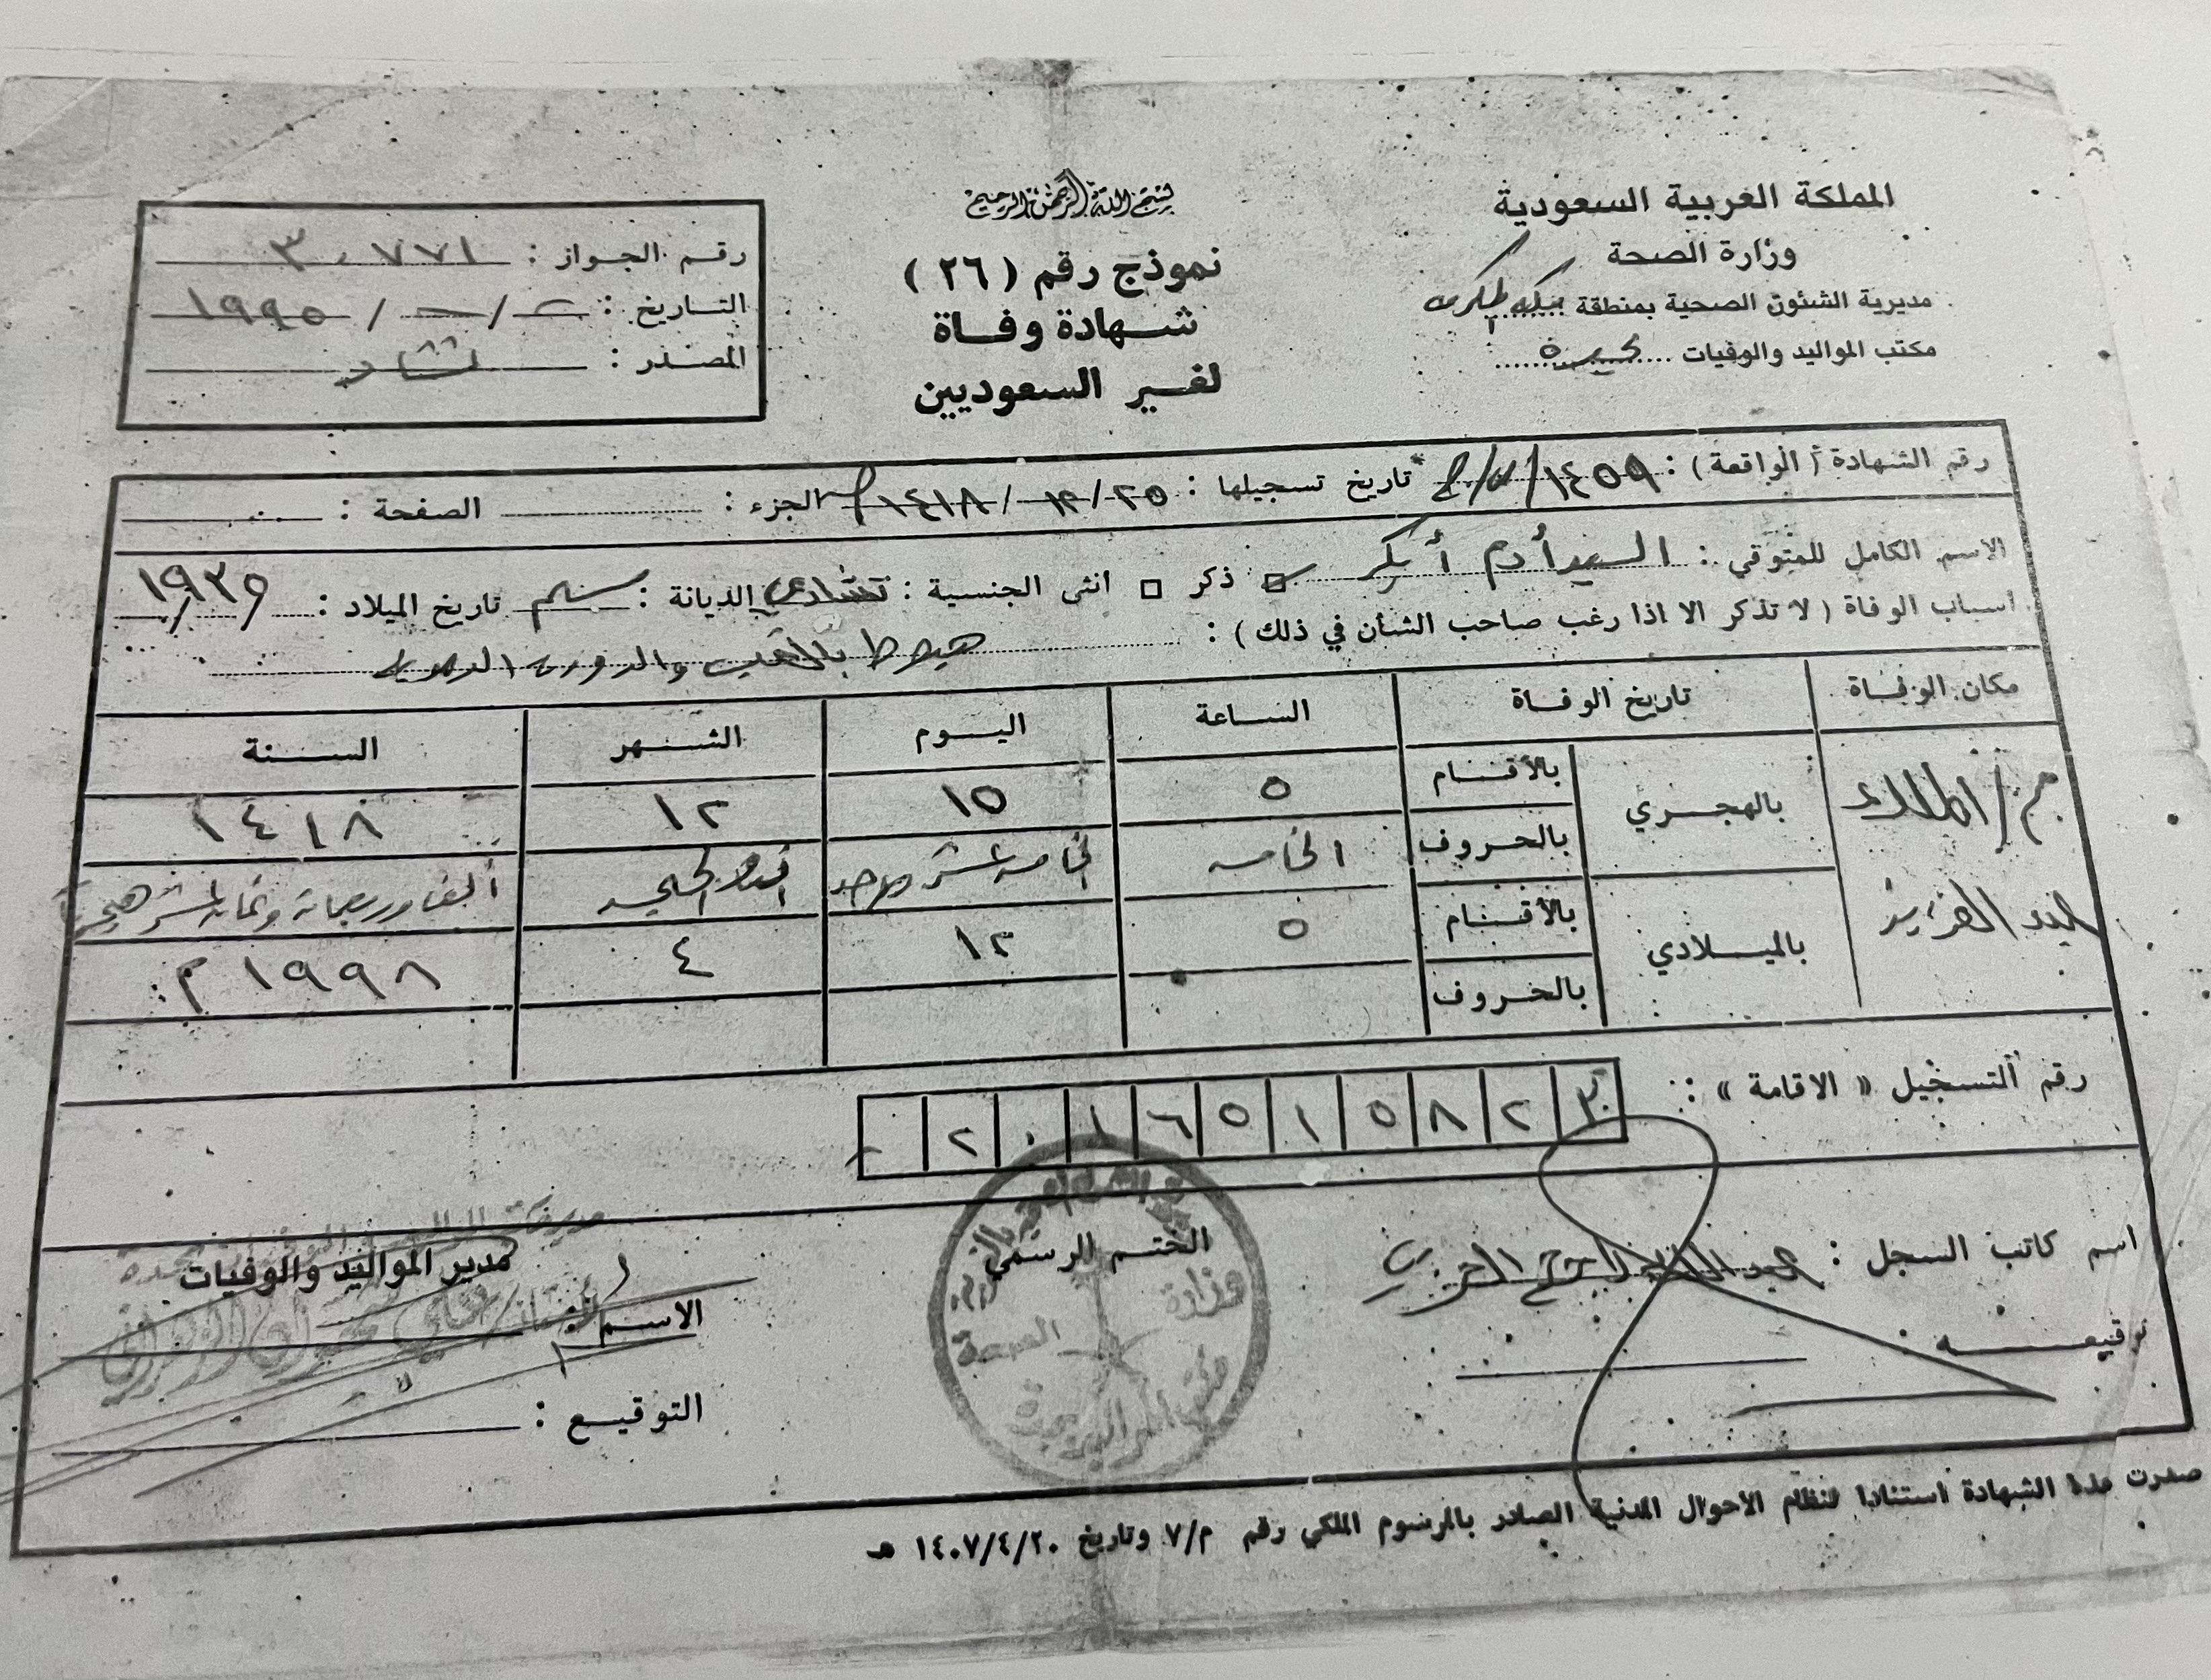 المملكة العربية السعودية
وزارة الصحة
مديرية الشئون الصحية بمنطقة
مكتب المواليد والوفيات جدة
بسم الله الرحمن الرحيم
نموذج رقم (٢٦)
شهادة وفاة
لغير السعوديين
رقم الجواز : ٣٠٧٧١
التاريخ : / / ١٩٩٥
المصدر : تشاد
رقم الشهادة (الواقعة) : ١٤٥٩/ تاريخ تسجيلها : ٢٥/١٢/١٤١٨ الجزء : الصفحة :
الاسم الكامل للمتوفي : السيد أدم أبكر ذكر انثى الجنسية : تشادي الديانة : مسلم تاريخ الميلاد : ١٩٣٥
اسباب الوفاة (لا تذكر الا اذا رغب صاحب الشأن في ذلك) :
هبوط والدورة الدموية
مكان الوفاة تاريخ الوفاة الساعة اليوم الشهر السنة
م/الملك عبد العزيز
بالهجري بالأقسام ٥ ١٥ ١٢ ١٤١٨
بالحروف الخامسه الخامسة عشر
بالميلادي بالأقسام ٥ ١٢ ٤ ١٩٩٨ م
بالحروف
رقم التسجيل « الاقامة » : ٣ ٢ ٨ ٥ ١ ٥ ٦ ١ ٠ ٢
اسم كاتب السجل :
توقيعه
الختم الرسمي
وزارة الصحة
مدير المواليد والوفيات
الاسم :
التوقيع :
صدرت هذا الشهادة استنادا لنظام الأحوال المدنية الصادر بالمرسوم الملكي رقم م/٧ وتاريخ ١٤٠٧/٤/٢٠ هـ